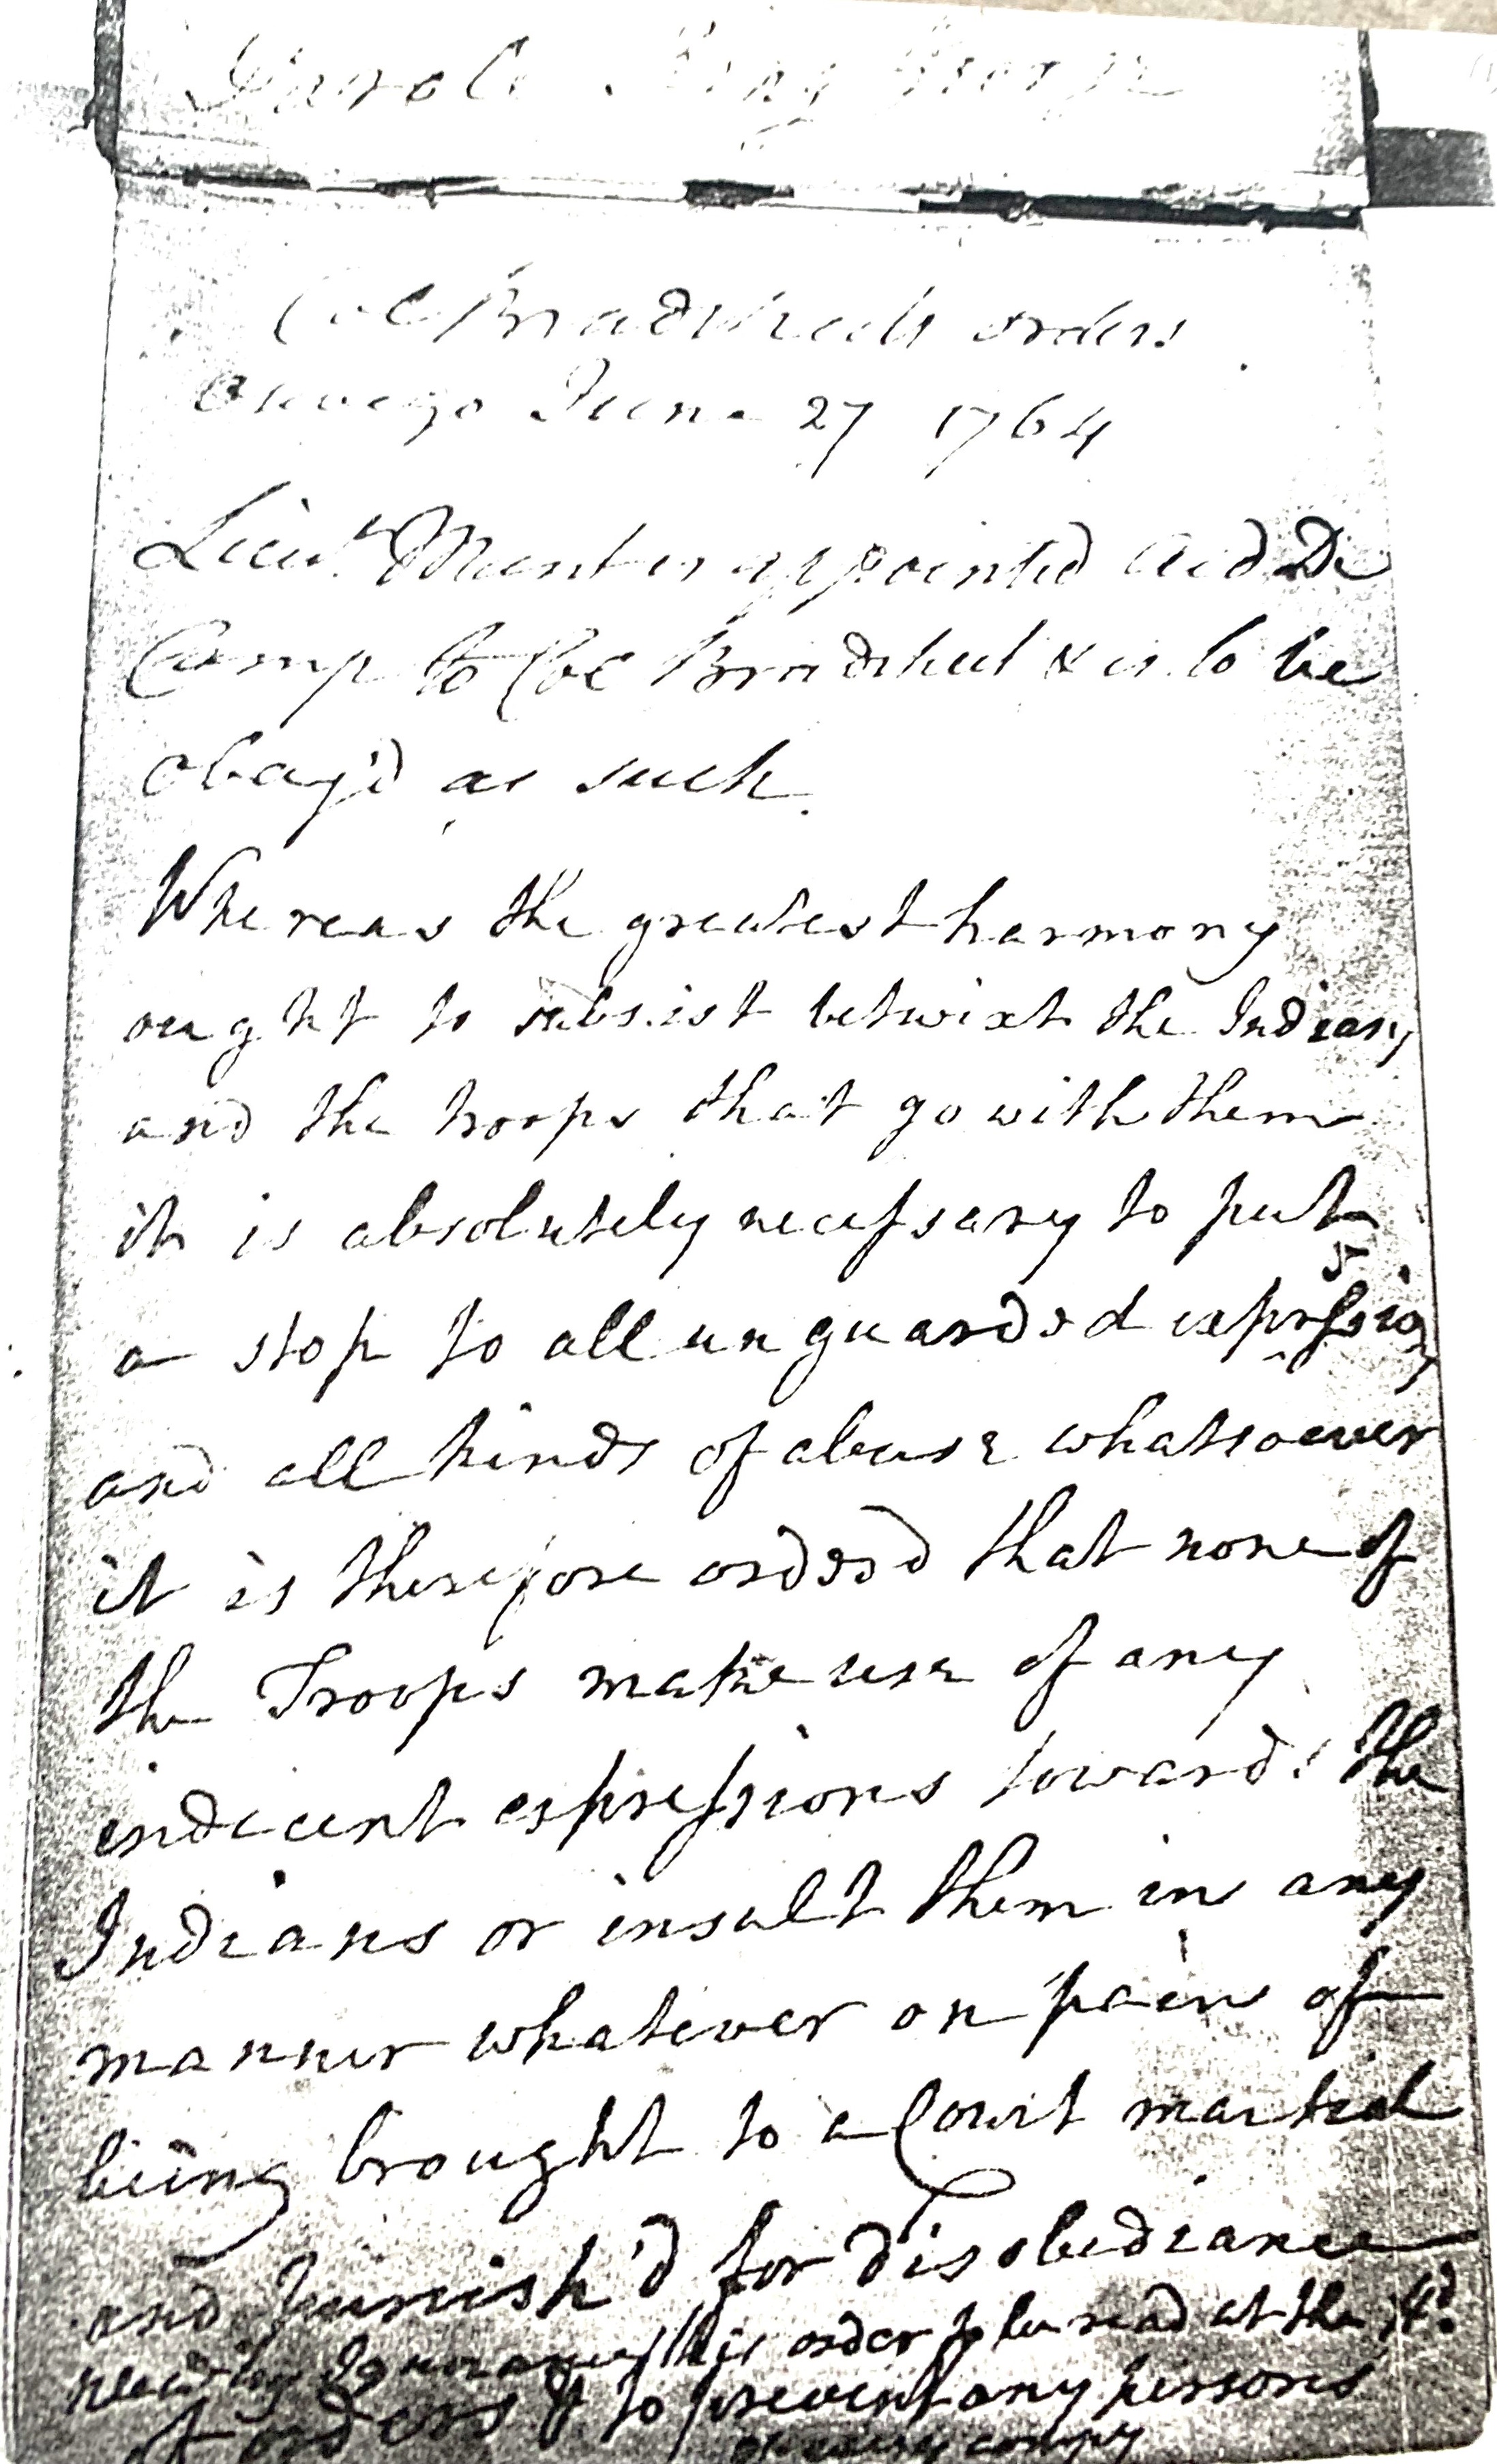 Parole King George
Col Bradstreets orders
Oswego June 27 1764
Lieut. Mant is appointed Aid De
Camp to Col Bradstreet & is to be
obay'd as such.
Whereas the greatest harmony
ought to subsist betwixt the Indians
and the troops that go with them
it is absolutely necessary to put
a stop to all unguarded expressions
and all kinds of abuse whatsoever
it is therefore ordered that none of
the Troops make use of any
indecent expressions towards the
Indians or insult them in any
manner whatever on pain of
being brought to a Court martial
and punish'd for disobediance
this order to be read at the
of orders & to prevent any persons